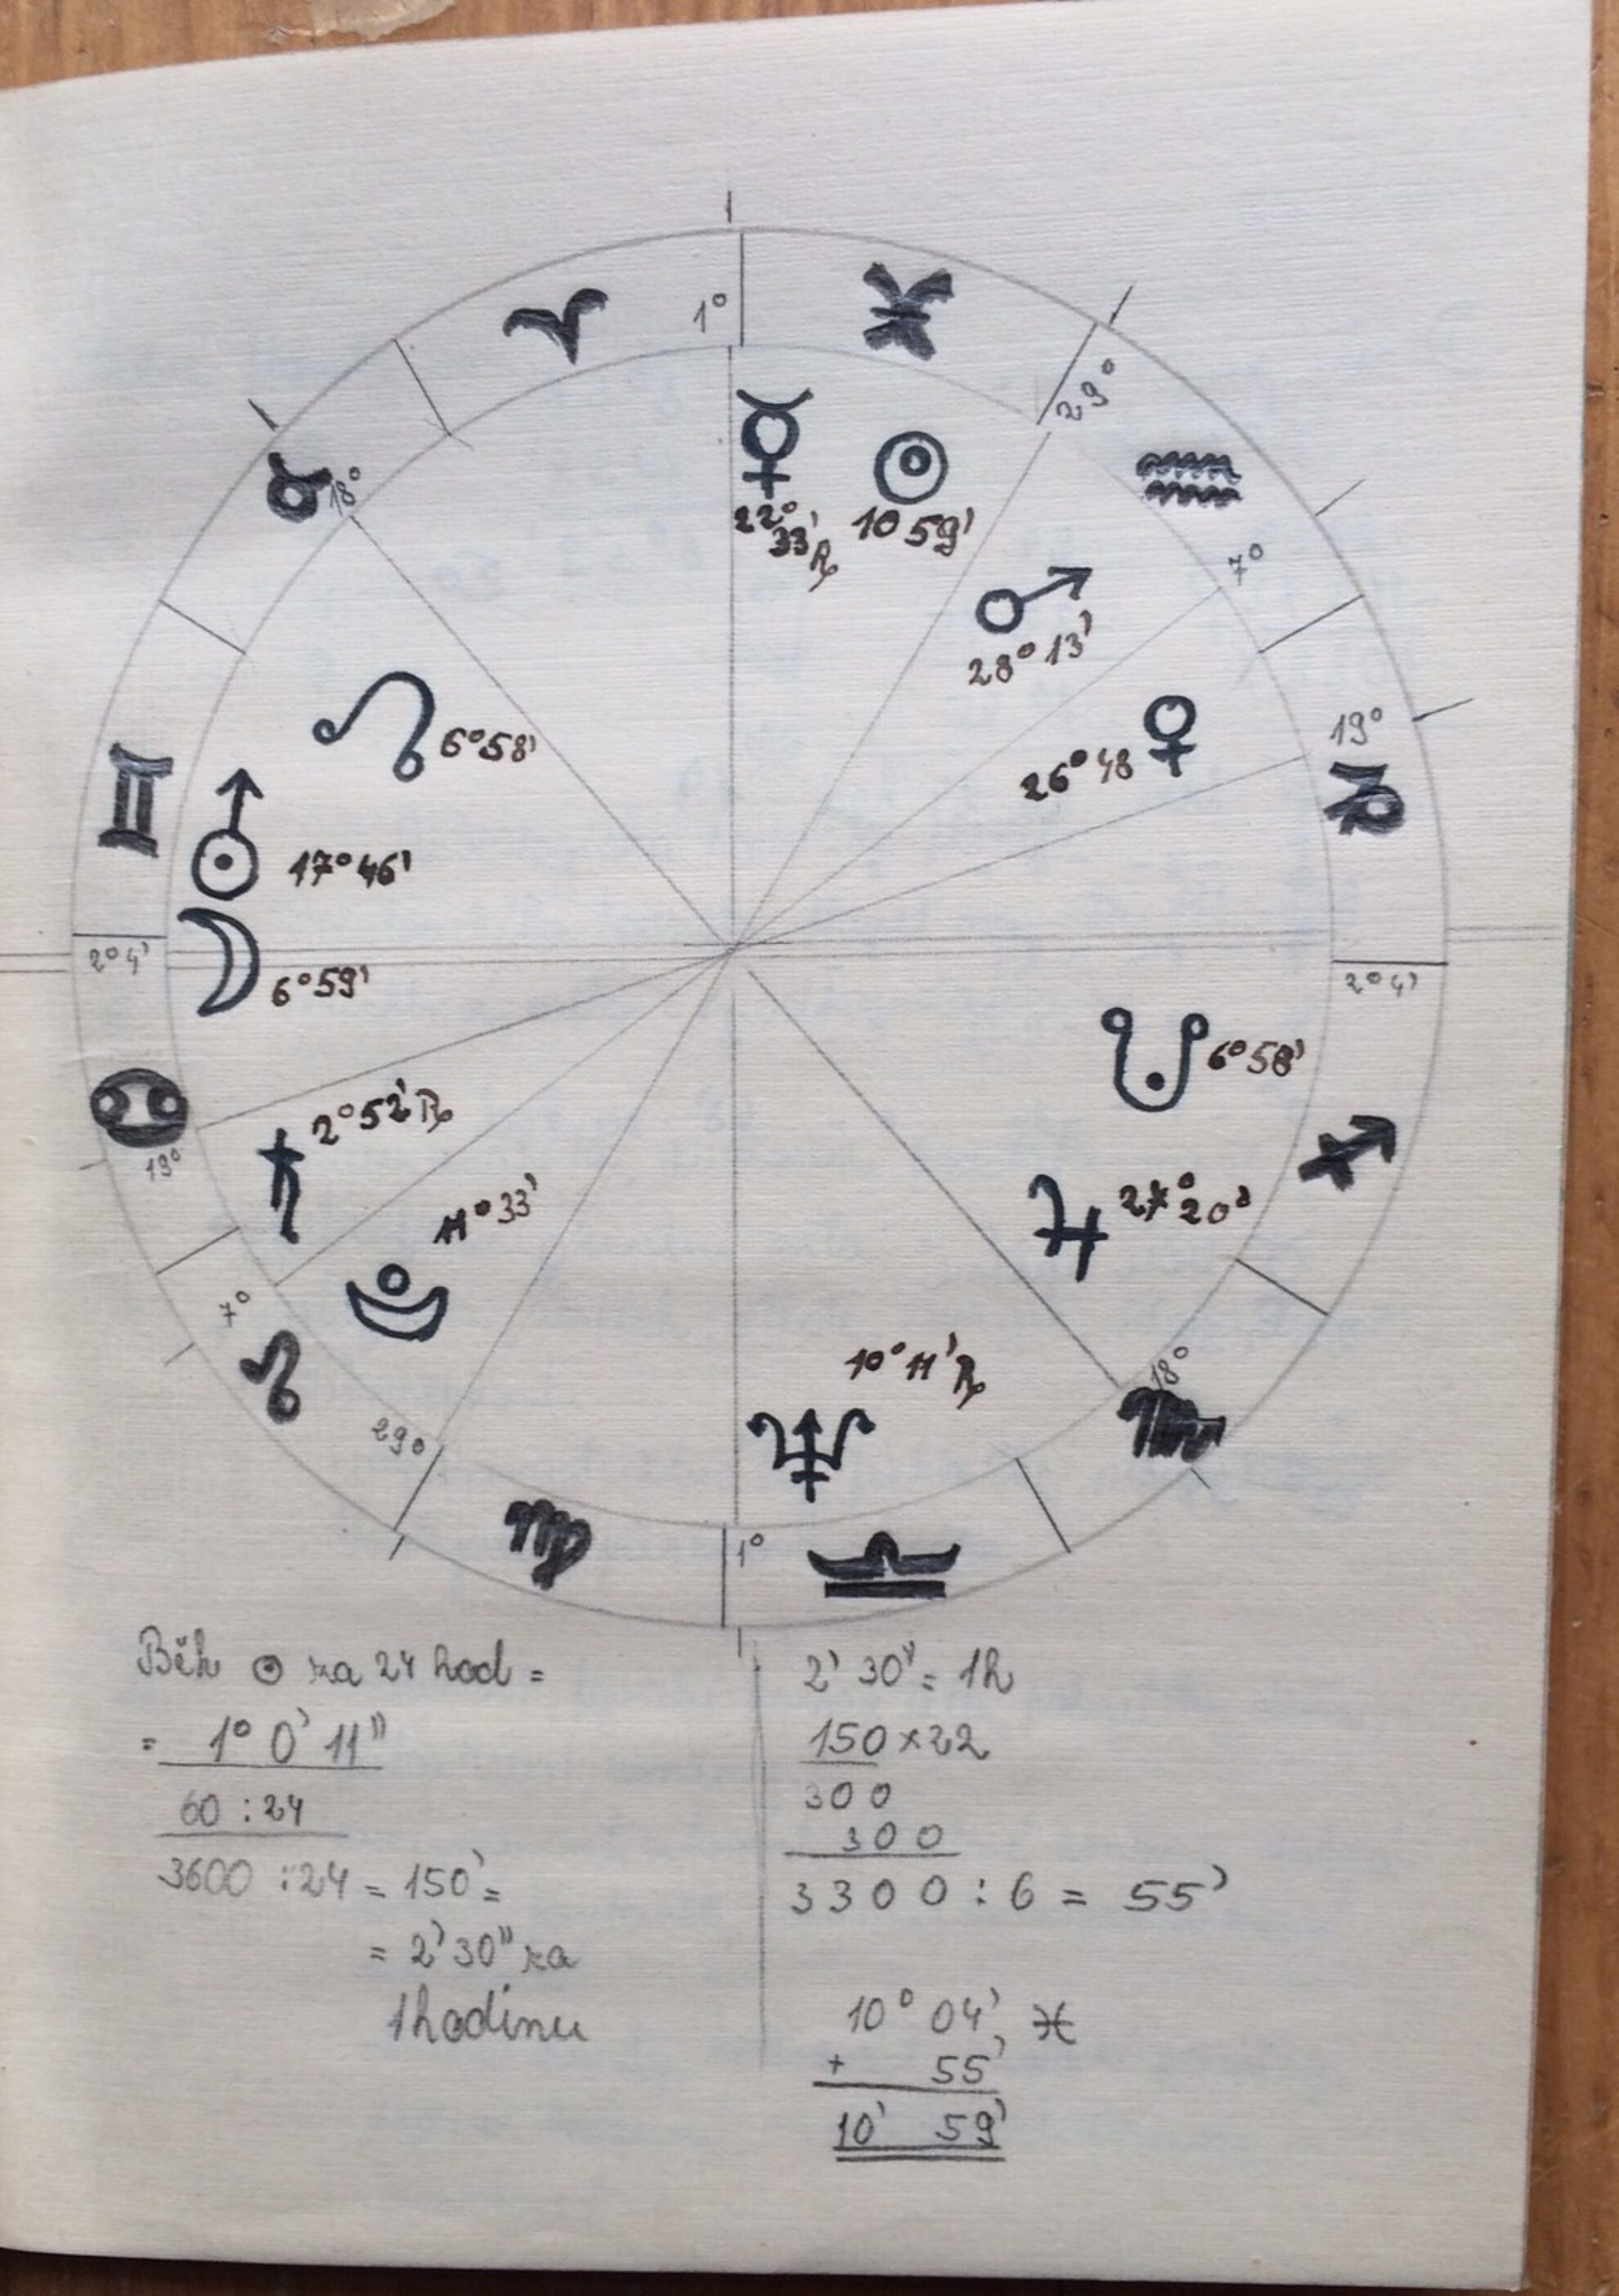 1°
29°
18°
22°
33' ℞
10 59'
7°
28° 13'
6°58'
26°48
19°
17°46'
2°4'
6°59'
2°4'
6°58'
2°52' ℞
19°
11°33'
27°
20'
7°
10°11' ℞
18°
29°
1°
Běh ☉ za 24 hod =
= 1° 0' 11"
60 : 24
3600 : 24 = 150' =
= 2' 30" za
1 hodinu
2' 30" = 1h
150 × 22
300
300
3300 : 6 = 55'
10° 04' ♓
+ 55'
10' 59'